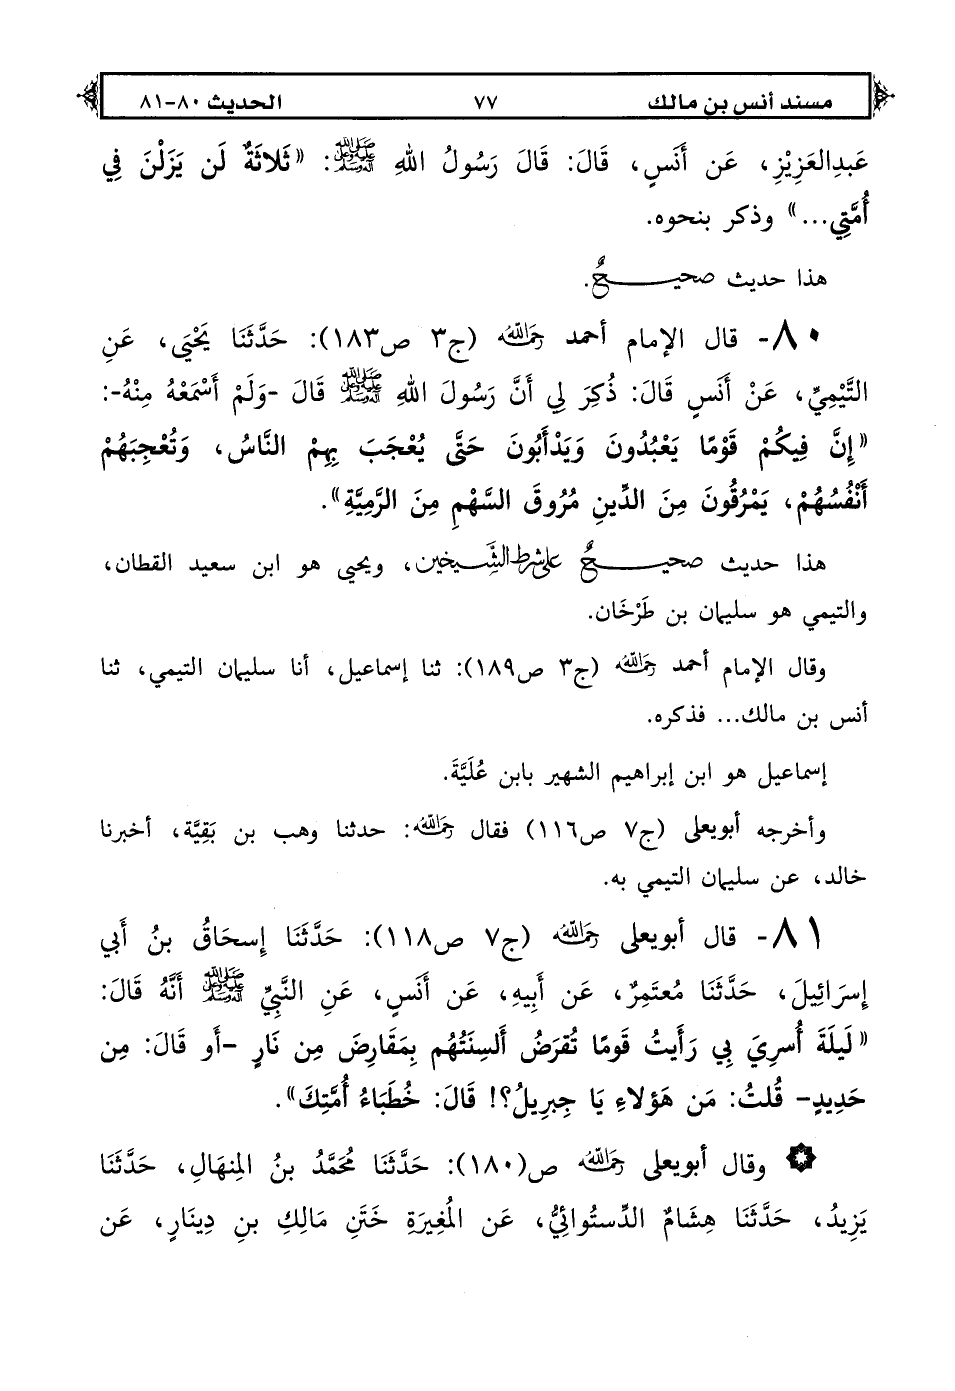 مسند أنس بن مالك ٧٧ الحديث ٨٠-٨١
عَبدِالعَزِيْزِ، عَن أَنَسٍ، قَالَ: قَالَ رَسُولُ اللهِ ﷺ: «ثَلاثَةٌ لَن يَزَلْنَ فِي
أُمَّتِي...» وذكر بنحوه.
هذا حديث صحيحٌ.
٨٠- قال الإمام أحمد رَحِمَهُ اللهُ (ج٣ ص١٨٣): حَدَّثَنَا يَحْيَى، عَنِ
التَّيْمِيِّ، عَنْ أَنَسٍ قَالَ: ذُكِرَ لِي أَنَّ رَسُولَ اللهِ ﷺ قَالَ -وَلَمْ أَسْمَعْهُ مِنْهُ-:
«إِنَّ فِيكُمْ قَوْمًا يَعْبُدُونَ وَيَدْأَبُونَ حَتَّى يُعْجَبَ بِهِمْ النَّاسُ، وَتُعْجِبَهُمْ
أَنْفُسُهُمْ، يَمْرُقُونَ مِنَ الدِّينِ مُرُوقَ السَّهْمِ مِنَ الرَّمِيَّةِ».
هذا حديث صحيحٌ على شرط الشَّيخين، ويحيى هو ابن سعيد القطان،
والتيمي هو سليمان بن طَرْخَان.
وقال الإمام أحمد رَحِمَهُ اللهُ (ج٣ ص١٨٩): ثنا إسماعيل، أنا سليمان التيمي، ثنا
أنس بن مالك... فذكره.
إسماعيل هو ابن إبراهيم الشهير بابن عُلَيَّةَ.
وأخرجه أبويعلى (ج٧ ص١١٦) فقال رَحِمَهُ اللهُ: حدثنا وهب بن بَقِيَّة، أخبرنا
خالد، عن سليمان التيمي به.
٨١- قال أبويعلى رَحِمَهُ اللهُ (ج٧ ص١١٨): حَدَّثَنَا إِسحَاقُ بنُ أَبي
إِسرَائِيلَ، حَدَّثَنَا مُعتَمِرٌ، عَن أَبِيهِ، عَن أَنَسٍ، عَنِ النَّبِيِّ ﷺ أَنَّهُ قَالَ:
«لَيلَةَ أُسرِيَ بِي رَأَيتُ قَومًا تُقرَضُ أَلسِنَتُهُم بِمَقَارِضَ مِن نَارٍ -أَو قَالَ: مِن
حَدِيدٍ- قُلتُ: مَن هَؤلاءِ يَا جِبرِيلُ؟! قَالَ: خُطَبَاءُ أُمَّتِكَ».
وقال أبويعلى رَحِمَهُ اللهُ ص(١٨٠): حَدَّثَنَا مُحَمَّدُ بنُ المِنهَالِ، حَدَّثَنَا
يَزِيدُ، حَدَّثَنَا هِشَامٌ الدَّستُوائِيُّ، عَن المُغِيرَةِ خَتَنِ مَالِكِ بنِ دِينَارٍ، عَن